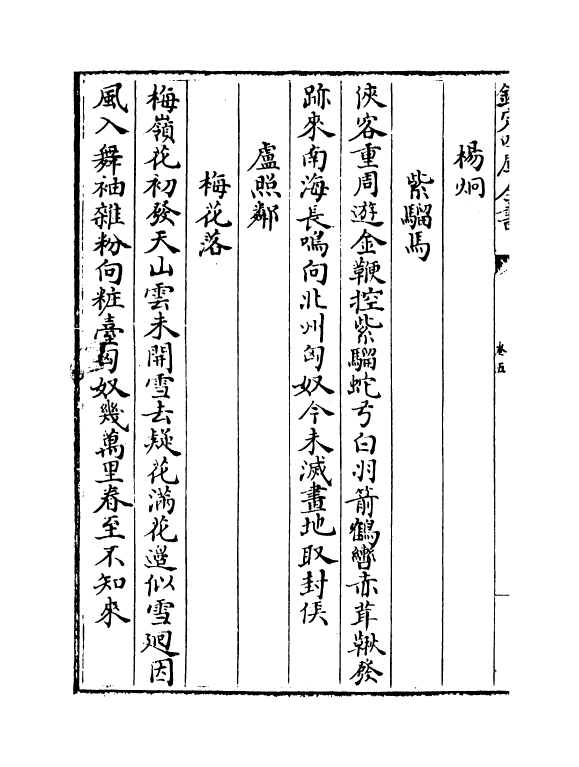 欽定四庫全書
卷五
楊炯
紫騮馬
俠客重周遊金鞭控紫騮蛇弓白羽箭鶴轡赤茸鞦發
跡來南海長鳴向北州匈奴今未滅畫地取封侯
盧照鄰
梅花落
梅嶺花初發天山雲未開雪去疑花滿花邊似雪廻因
風入舞袖雜粉向粧臺匈奴幾萬里春至不知來